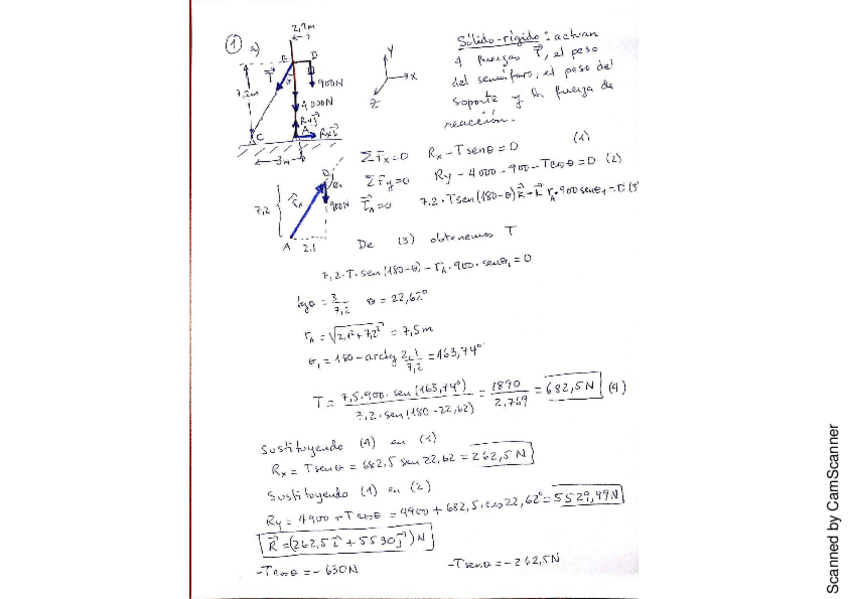 ① a)
2,1m
B D
T
θ
900N
7,2m
4000N
Ry j
C A Rx i
3m
Y
X
Z
Sólido-rígido: actúan
4 fuerzas T, el peso
del semáforo, el peso del
soporte y la fuerza de
reacción.
ΣFx=0 Rx - Tsenθ = 0 (1)
ΣFy=0 Ry - 4000 - 900 - Tcosθ = 0 (2)
7,2·Tsen(180-θ)k - k rA·900senθ1 = 0 (3)
D
θ1
7,2
rA
900N
A 2.1
De (3) obtenemos T
7,2·T·sen(180-θ) - rA·900·senθ1 = 0
tgθ = 3/7,2 θ = 22,62°
rA = √2,1²+7,2² = 7,5m
θ1 = 180 - arctg 2,1/7,2 = 163,74°
T = 7,5·900·sen(163,74°)/7,2·sen(180-22,62) = 1890/2,769 = 682,5N (4)
Sustituyendo (4) en (1)
Rx = Tsenθ = 682,5 sen22,62 = 262,5N
Sustituyendo (1) en (2)
Ry = 4900 + Tcosθ = 4900 + 682,5·cos22,62° = 5529,99N
R = (262,5i + 5530j)N
-Tcosθ = -630N -Tsenθ = -262,5N
Scanned by CamScanner